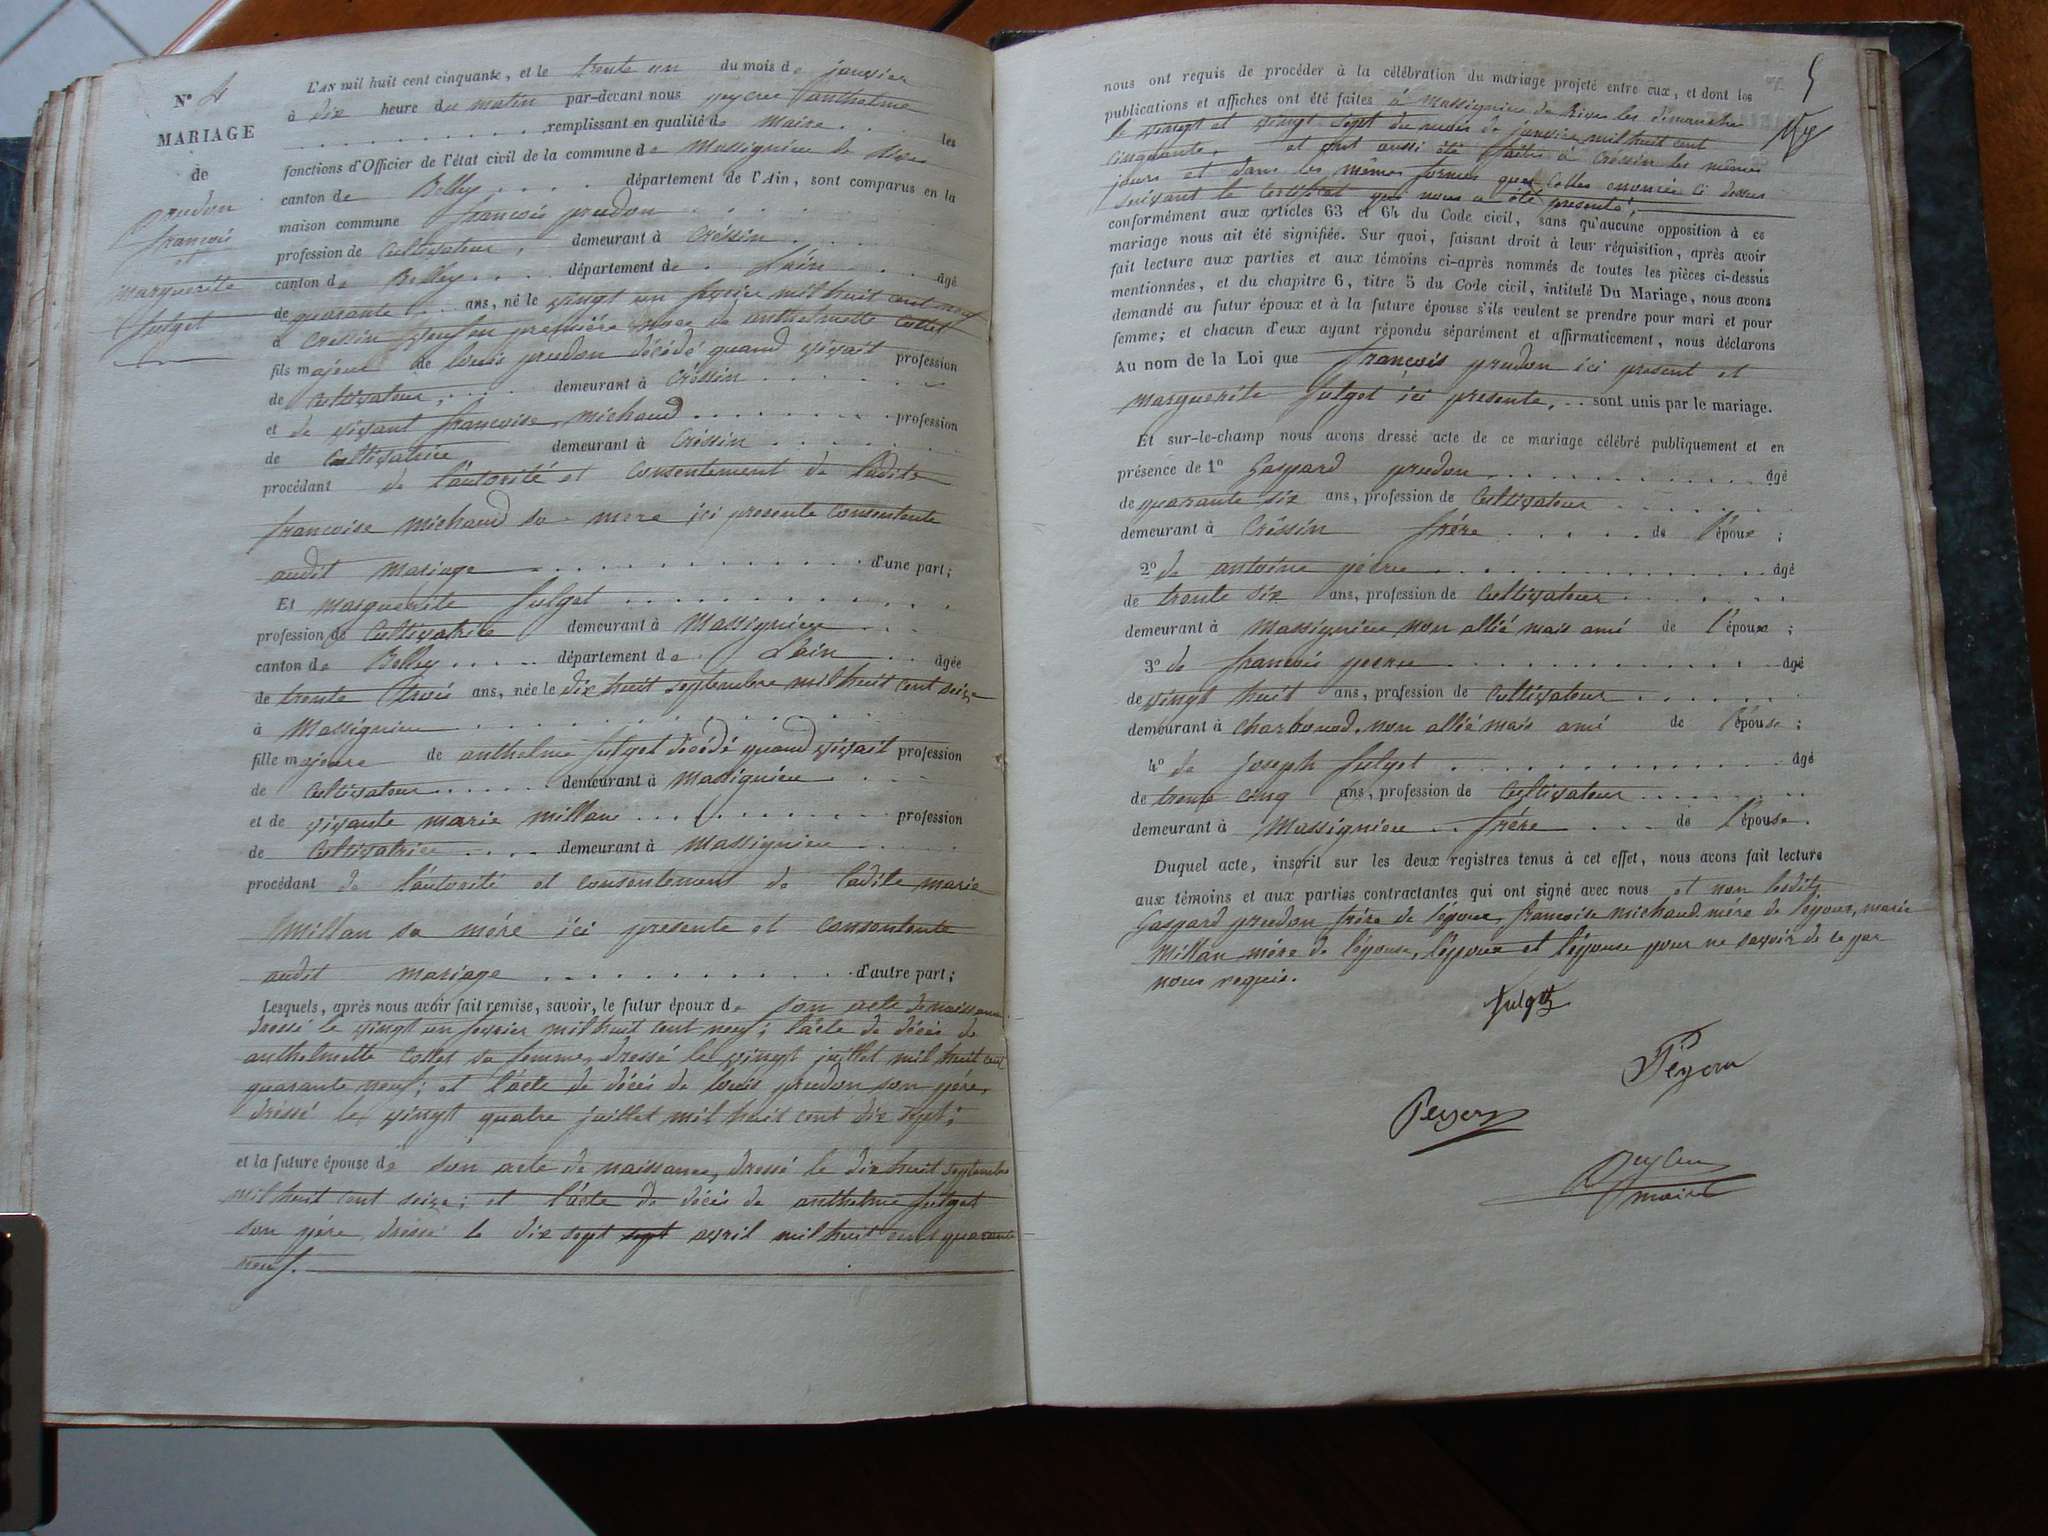 N° 4
MARIAGE
de
Prudon
françois
marguerite
fulget
L'AN mil huit cent cinquante, et le trente un du mois de janvier
à dix heure du matin par-devant nous peycru anthelme
remplissant en qualité de Maire les
fonctions d'Officier de l'état civil de la commune de Massignieu de Rives
canton de Belley département de l'Ain, sont comparus en la
maison commune françois prudon
profession de Cultivateur, demeurant à Créssin
canton de Belley département de Lain agé
de quarante ans, né le vingt un fevrier mil huit cent neuf
à Cressin veuf en premiére noce de anthelmette Collet
fils majeur de louis prudon décédé quand vivait profession
de Cultivateur, demeurant à Créssin
et de vivant francoise michaud profession
de Cultivatrice demeurant à Créssin
procédant de l'autorité et consentement de ladite
francoise michaud sa mere ici presente Consentente
audit mariage d'une part;
Et marguerite fulget
profession de Cultivatrice demeurant à Massignieu
canton de Belley département de Lain agée
de trente trois ans, née le dix huit septembre mil huit cent seize
à Massignieu
fille majeure de anthelme fulget décédé quand vivait profession
de Cultivateur demeurant à Massignieu
et de vivante marie millan profession
de Cultivatrice demeurant à Massignieu
procédant de l'autorité et consentement de ladite marie
millan sa mére ici presente et consentente
audit mariage d'autre part;
Lesquels, après nous avoir fait remise, savoir, le futur époux de son acte de naissance
dressé le vingt un fevrier mil huit cent neuf; l'acte de décés de
anthelmette Collet sa femme, dressé le vingt juillet mil huit cent
quarante neuf; et l'acte de décés de louis prudon son pére,
dréssé le vingt quatre juillet mil huit cent dix sept;
et la future épouse de son acte de naissance, dressé le dix huit septembre
mil huit cent seize; et l'acte de décés de anthelme fulget
son pére dressé le dix sept sept avril mil huit cent quarante
neuf.
5
nous ont requis de procéder à la célébration du mariage projeté entre eux, et dont les
publications et affiches ont été faites à Massignieu de Rives les dimanches
le vingt et vingt sept du mois de janvier mil huit cent
cinquante, et ont aussi été faites à Créssin les mêmes
jours et dans les mêmes formes que celles enoncée ci dessus
suivant le certificat qui nous a été presenté;
conformément aux articles 63 et 64 du Code civil, sans qu'aucune opposition à ce
mariage nous ait été signifiée. Sur quoi, faisant droit à leur réquisition, après avoir
fait lecture aux parties et aux témoins ci-après nommés de toutes les pièces ci-dessus
mentionnées, et du chapitre 6, titre 5 du Code civil, intitulé Du Mariage, nous avons
demandé au futur époux et à la future épouse s'ils veulent se prendre pour mari et pour
femme; et chacun d'eux ayant répondu séparément et affirmativement, nous déclarons
Au nom de la Loi que françois prudon ici present et
marguerite fulget ici presente, sont unis par le mariage.
Et sur-le-champ nous avons dressé acte de ce mariage célébré publiquement et en
présence de 1° Gaspard prudon agé
de quarante six ans, profession de Cultivateur
demeurant à Créssin frére de l'époux;
2° de antoine agé
de trente six ans, profession de Cultivateur
demeurant à Massignieu non allié mais ami de l'époux;
3° de francois agé
de vingt huit ans, profession de Cultivateur
demeurant à charbonod. non allié mais ami de l'épouse;
4° de joseph fulget agé
de trente cinq ans, profession de Cultivateur
demeurant à Massignieu frére de l'épouse.
Duquel acte, inscrit sur les deux registres tenus à cet effet, nous avons fait lecture
aux témoins et aux parties contractantes qui ont signé avec nous et non lesdits
Gaspard prudon frére de l'époux, francoise michaud mére de l'époux, marie
Millan mére de l'épouse, l'époux et l'épouse pour ne savoir de ce par
nous requis.
maire